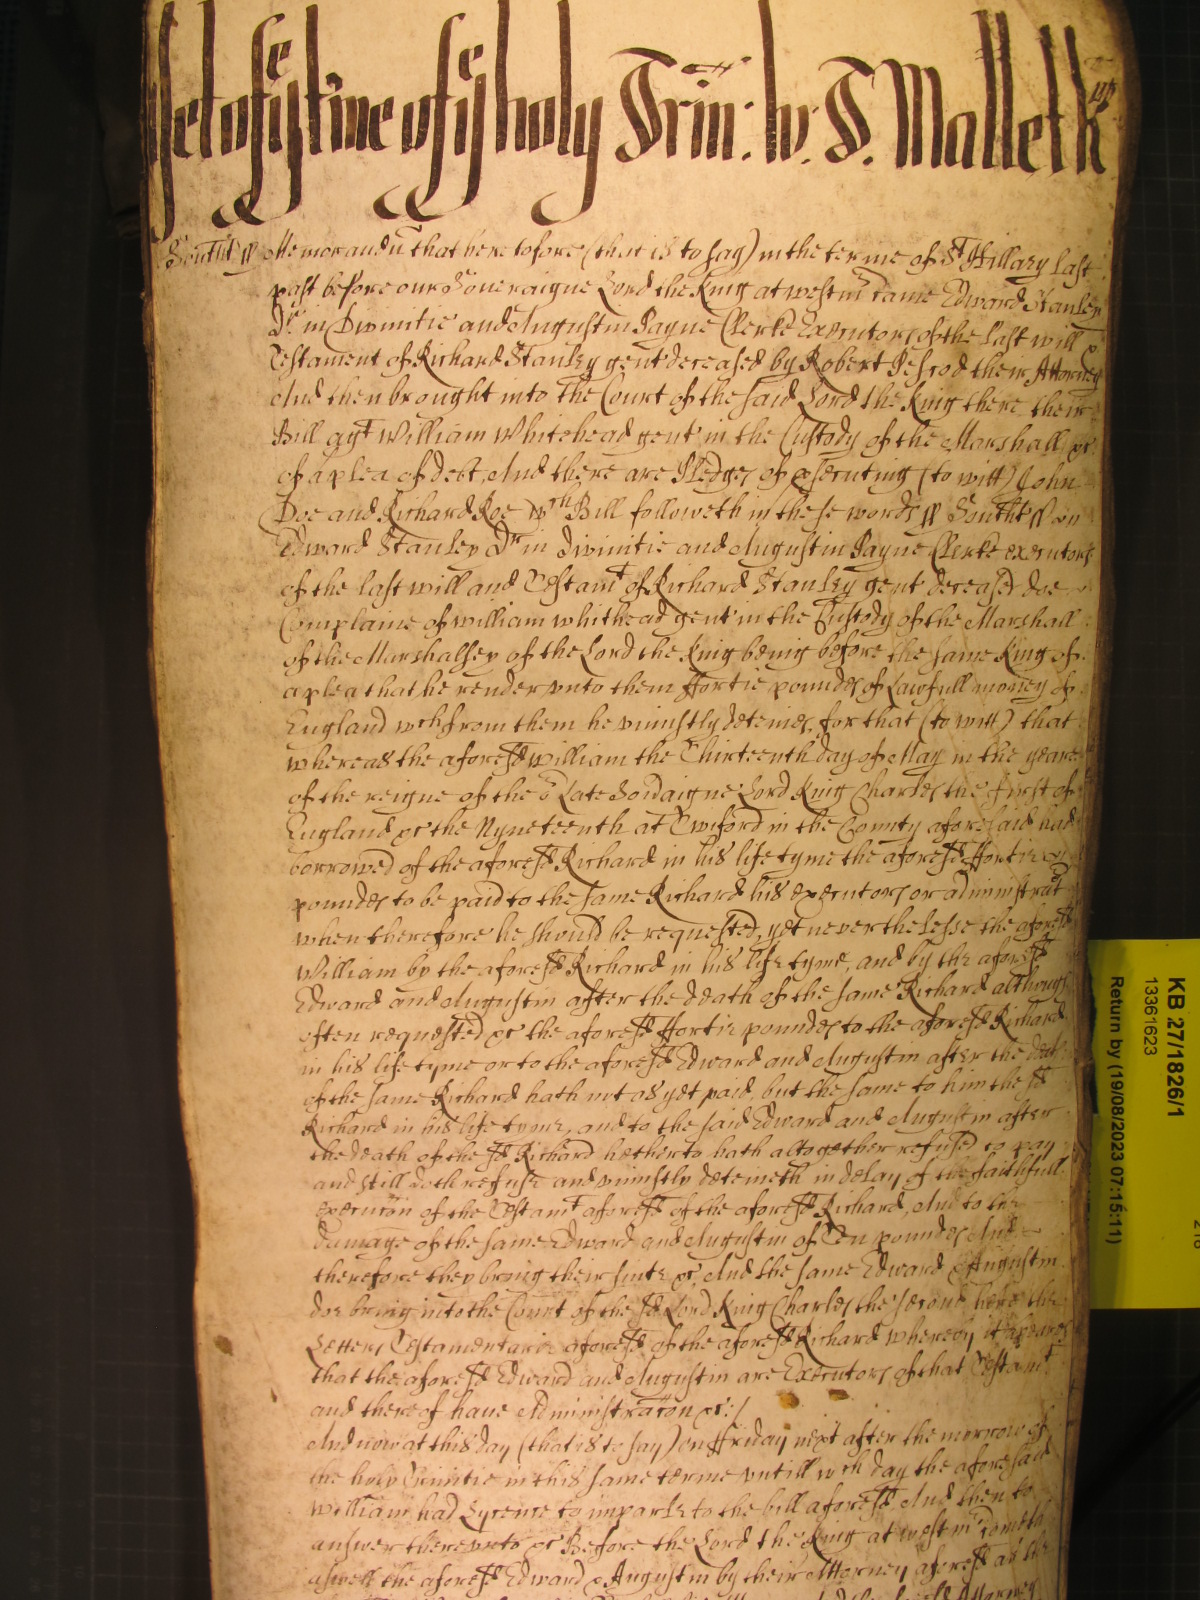 yet of yͤ tme of yͤ holy Trin: w. T. Mallet kᵗ
Southt ss Memorandū that heretofore (that is to say) in the terme of Sᵗ Hillary last
past before our Soueraigne Lord the King at westm̄ came Edward Stanley
Dʳ in Divinitie and Augustin Payne Clerke Executors of the last will &
Testament of Richard Stanley gent deceased by Robert Pescod their Attorney
And then brought into the Court of the said Lord the King there their
Bill agᵗ William Whitehead gent in the Custody of the Marshall &c.
of a plea of debt, And there are Pledges of prsecuting (to witt) John
Doe and Richard Roe wᶜʰ Bill followeth in these words ss Southt ss
Edward Stanley Dʳ in Divinitie and Augustin Payne Clerke executors
of the last will and Testamᵗ of Richard Stanley gent deceased doe
Complaine of William Whithead gent in the Custody of the Marshall
of the Marshalsey of the Lord the King being before the same King of
a plea that he render vnto them ffortie poundes of Lawfull money of
England wch from them he vniustly deteines, for that (to witt) that
whereas the aforesᵈ William the Thirteenth day of May in the yeare
of the reigne of the Late Soũaigne Lord King Charles the first of
England &c the Nyneteenth at Twiford in the County aforesaid had
borrowed of the aforesᵈ Richard in his life tyme the aforesᵈ ffortie
poundes to be paid to the same Richard his executors or administratᵒʳˢ
when therefore he should be requested, yet neverthelesse the aforesᵈ
William by the aforesᵈ Richard in his life tyme, and by the aforesᵈ
Edward and Augustin after the death of the same Richard although
often requested &c the aforesᵈ ffortie poundes to the aforesᵈ Richard
in his life tyme or to the aforesᵈ Edward and Augustin after the death
of the same Richard hath not as yet paid, but the same to him the sᵈ
Richard in his life tyme, and to the said Edward and Augustin after
the death of the sᵈ Richard hetherto hath altogether refused to pay
and still doth refuse and vniustly deteineth in delay of the faithfull
execut̃on of the Testamᵗ aforesᵈ of the aforesᵈ Richard, And to the
damage of the same Edward and Augustin of Ten poundes And
therefore they bring their suite &c, And the same Edward & Augustin
doe bring into the Court of the sᵈ Lord King Charles the second here the
Letters Testamentarie aforesᵈ of the aforesᵈ Richard whereby it appeares
that the aforesᵈ Edward and Augustin are Executors of that Testamᵗ
and thereof haue Administrat̃on &c:/
And now at this day (that is to say) on ffriday next after the morrow of
the holy Trinitie in this same terme vntill wch day the aforesaid
William had Lycence to imparle to the bill aforesᵈ And then to
answer therevnto &c Before the Lord the King at westm̃ cometh
aswell the aforesᵈ Edward & Augustin by their Attorney aforesᵈ as the
KB 27/1826/1
13361623
Return by (19/08/2023 07:15:11)